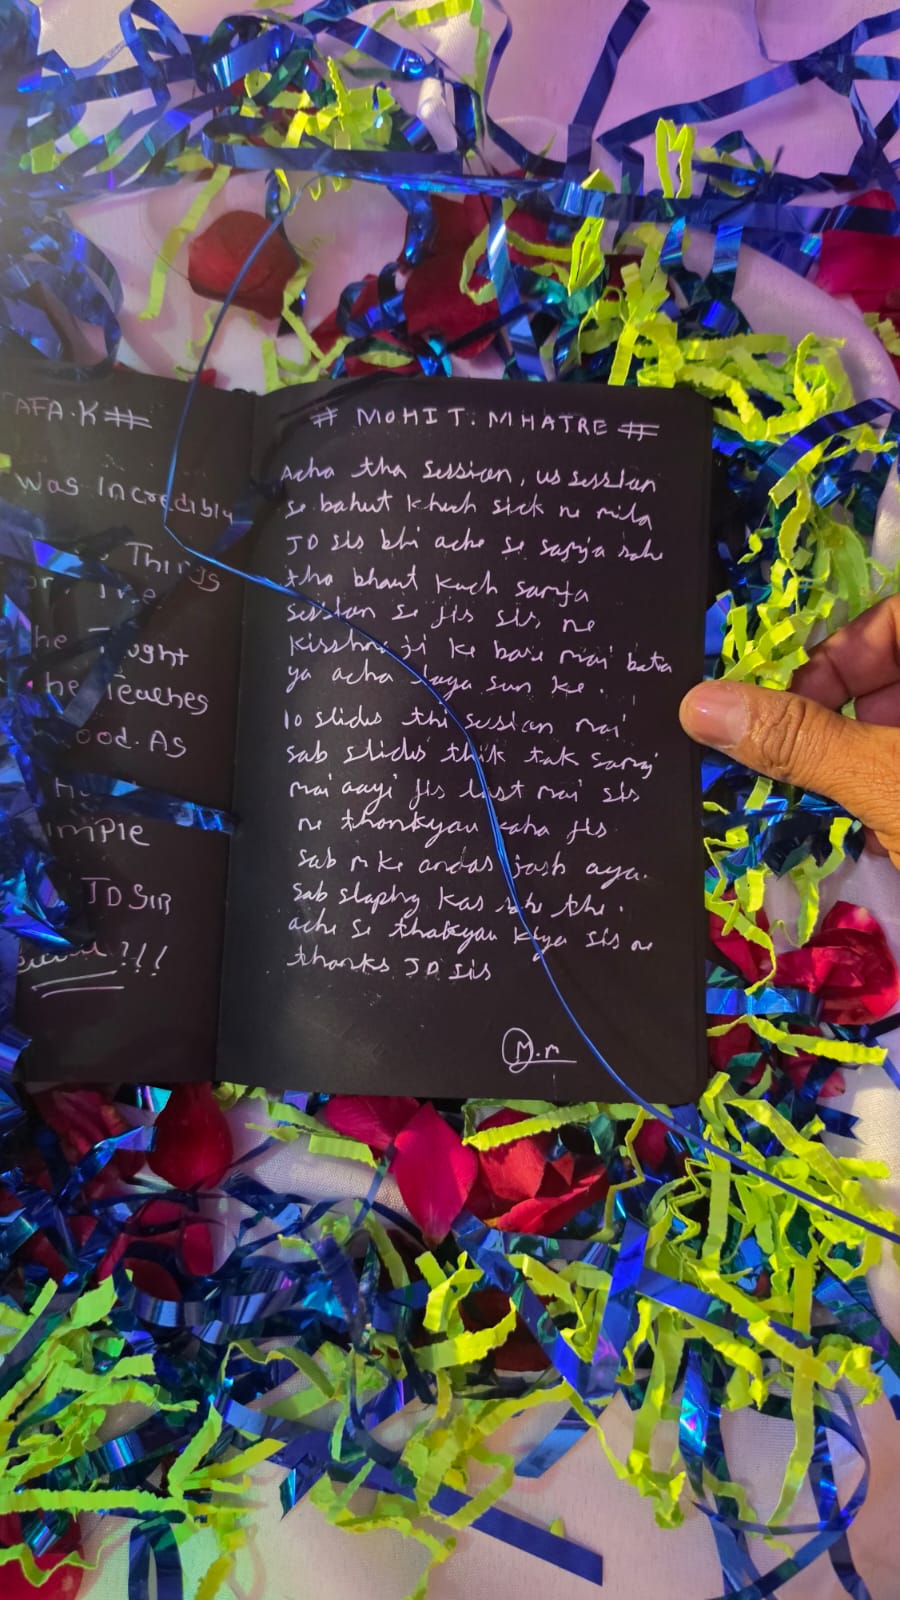 AFA.K#
was Incredibly
Things
or The
he Taught
he Teaches
ood. As
imple
JD SIR
!!!
# MOHIT. MHATRE #
Acha tha session, us session
se bahut khuch sick ne mila
JD sis bhi ache se samja rahe
tha bhaut kuch samja
session se jis sis ne
Kisshna ji ke bare mai bata
ya acha laga sun ke.
10 slides thi session mai
sab slides thik tak samaj
mai aayi jis last mai sis
ne thonkyou kaha jis
sab m ke andas josh aya.
sab slaping kas rahe the.
ache se thakyou kiya sis ne
thanks JD sis
M.m